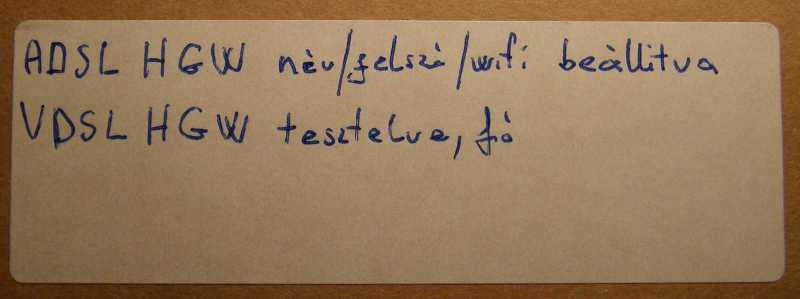 ADSL HGW név/jelszó/wifi beállitva
VDSL HGW tesztelve, jó